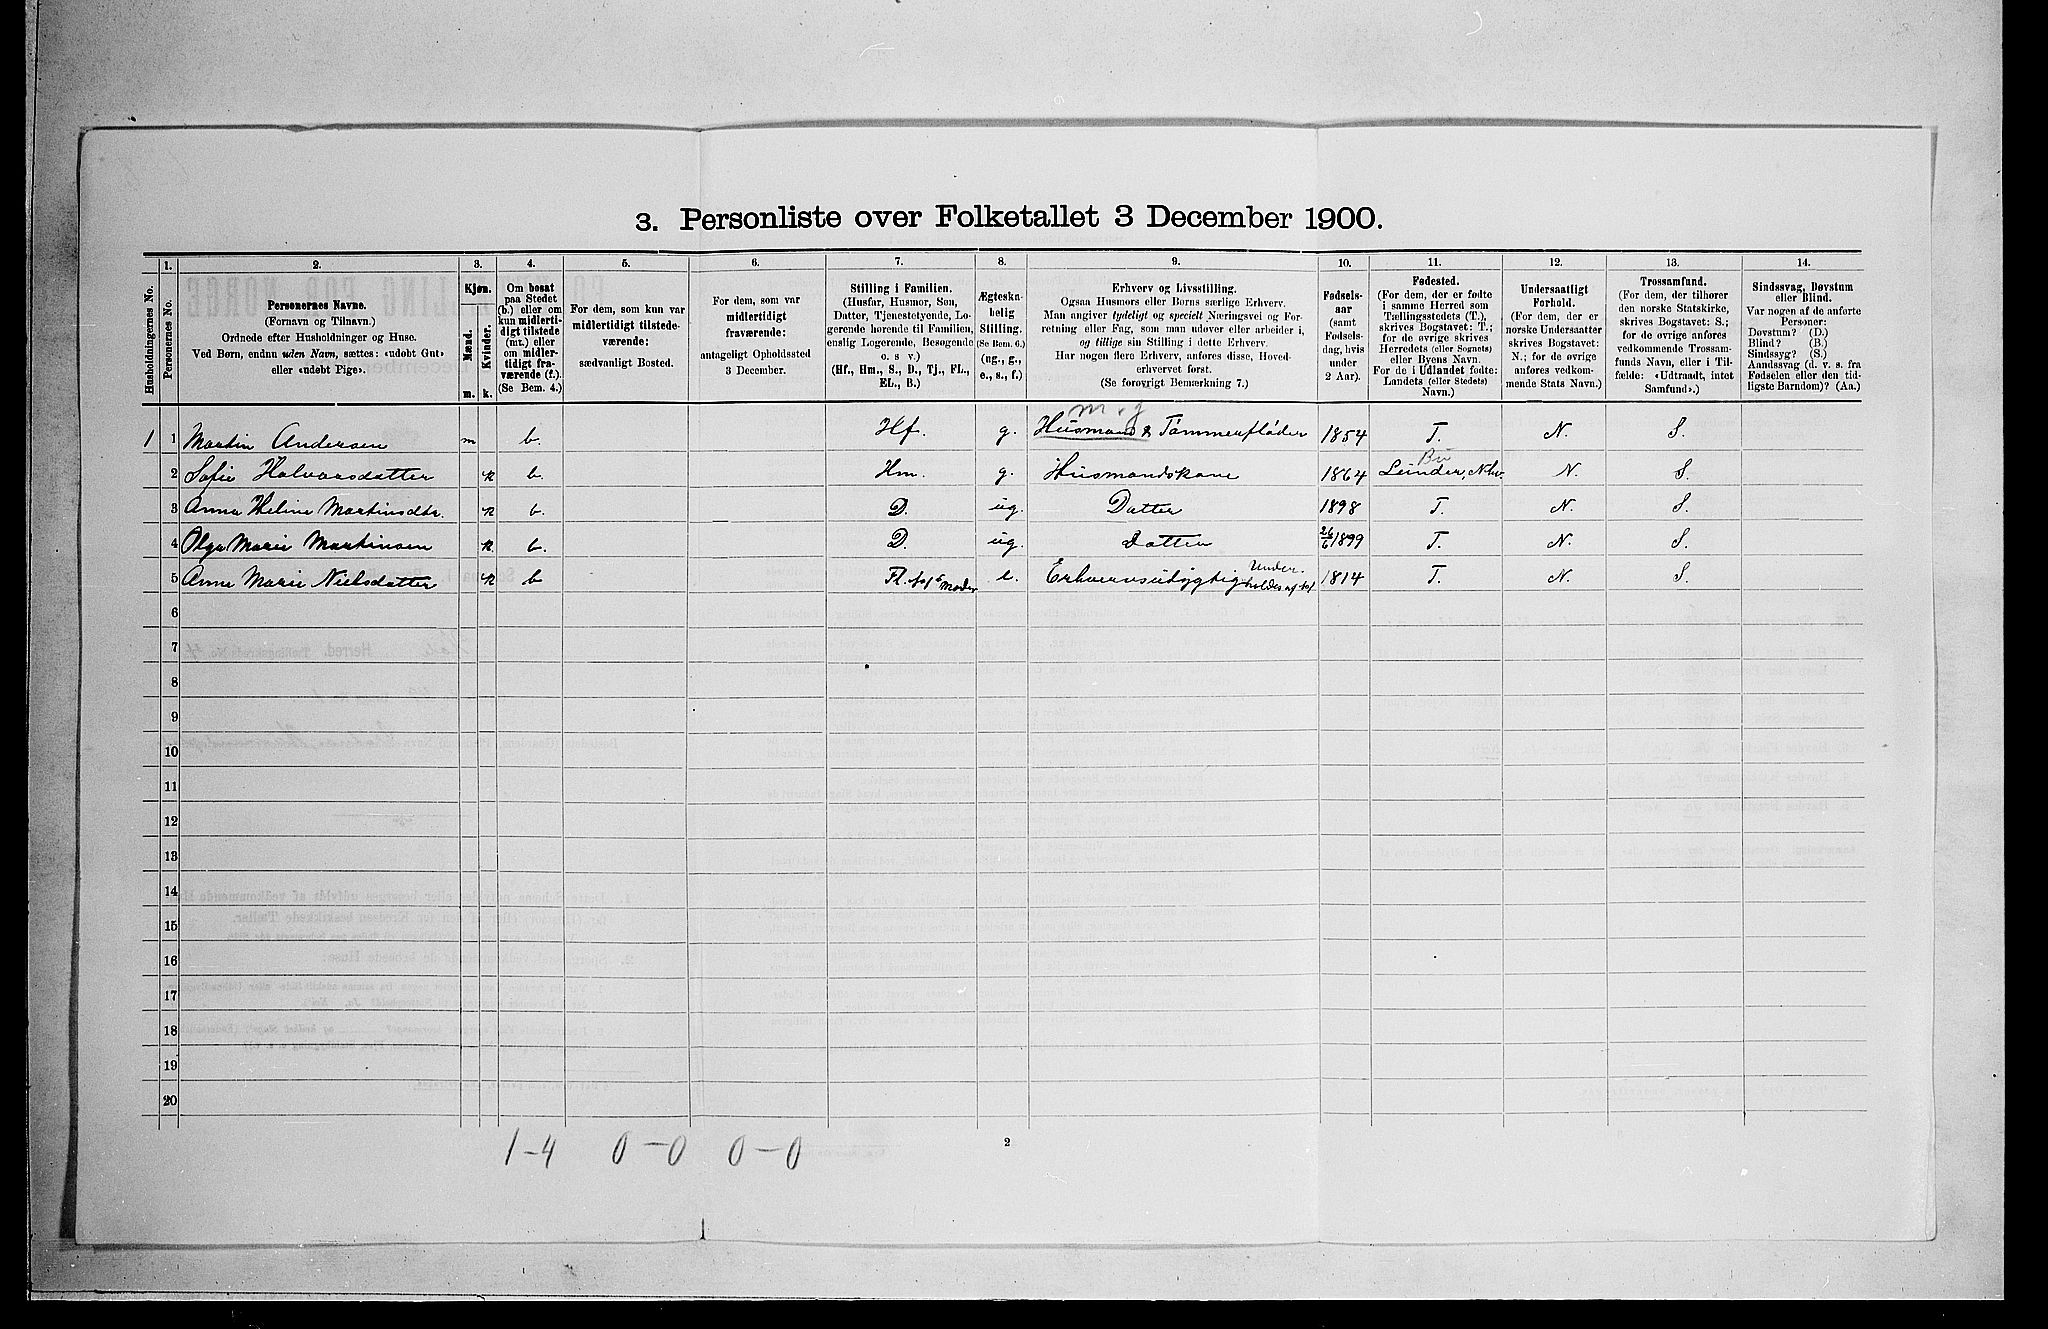 3. Personliste over Folketallet 3 December 1900.
1. 2. 3. 4. 5. 6. 7. 8. 9. 10. 11. 12. 13. 14.
Husholdningernes No.
Personernes No.
Personernes Navne.
(Fornavn og Tilnavn.)
Ordnede efter Husholdninger og Huse.
Ved Børn, endnu uden Navn, sættes: «udøbt Gut»
eller «udøbt Pige».
Kjøn.
Mænd.
Kvinder.
m. k.
Om bosat
paa Stedet
(b.) eller om
kun midlerti-
digt tilstede
(mt.) eller
om midler-
tidigt fra-
værende (f.).
(Se Bem. 4.)
For dem, som kun var
midlertidigt tilstede-
værende:
sædvanligt Bosted.
For dem, som var
midlertidigt
fraværende:
antageligt Opholdssted
3 December.
Stilling i Familien.
(Husfar, Husmor, Søn,
Datter, Tjenestetyende, Lo-
gerende hørende til Familien,
enslig Logerende, Besøgende
o. s v.)
(Hf., Hm., S., D., Tj., FL.,
EL., B.)
Ægteska-
belig
Stilling.
(Se Bem. 6.)
(ug., g.,
e., s., f.)
Erhverv og Livsstilling.
Ogsaa Husmors eller Børns særlige Erhverv.
Man angiver tydeligt og specielt Næringsvei og For-
retning eller Fag, som man udøver eller arbeider i,
og tillige sin Stilling i dette Erhverv.
Har nogen flere Erhverv, anføres disse, Hoved-
erhvervet først.
(Se forøvrigt Bemærkning 7.)
Fødsels-
aar
(samt
Fødsels-
dag, hvis
under
2 Aar).
Fødested.
(For dem, der er fødte
i samme Herred som
Tællingsstedets (T.),
skrives Bogstavet: T.;
for de øvrige skrives
Herredets (eller Sognets)
eller Byens Navn.
For de i Udlandet fødte:
Landets (eller Stedets)
Navn.)
Undersaatligt
Forhold.
(For dem, der er
norske Undersaatter
skrives Bogstavet:
N.; for de øvrige
anføres vedkom-
mende Stats Navn.)
Trossamfund.
(For dem, der tilhører
den norske Statskirke,
skrives Bogstavet: S.;
for de øvrige anføres
vedkommende Trossam-
funds Navn, eller i Til-
fælde: «Udtraadt, intet
Samfund».)
Sindssvag, Døvstum
eller Blind.
Var nogen af de anførte
Personer:
Døvstum? (D.)
Blind? (B.)
Sindssyg? (S.)
Aandssvag (d. v. s. fra
Fødselen eller den tid-
ligste Barndom)? (Aa.)
1 1 Martin Andersen m b. Hf. g. Husmand & Tømmerfløder 1854 T. N. S.
2 Sofie Halvorsdatter k b. Hm. g. Husmandskone 1864 N. S.
3 Anna Heline Martinsdtr. k b. D. ug. Datter 1898 T. N. S.
4 Olga Marie Martinsen k. b. D. ug. Datter 26/6 1899 T. N. S.
5 Anna Marie Nielsdatter k b Fl. Moder e. Erhvervsudygtig Under- holdes af 1814 T. N. S.
6
7
8
9
10
11
12
13
14
15
16
17
18
19
20
1-4 0-0 0-0
2